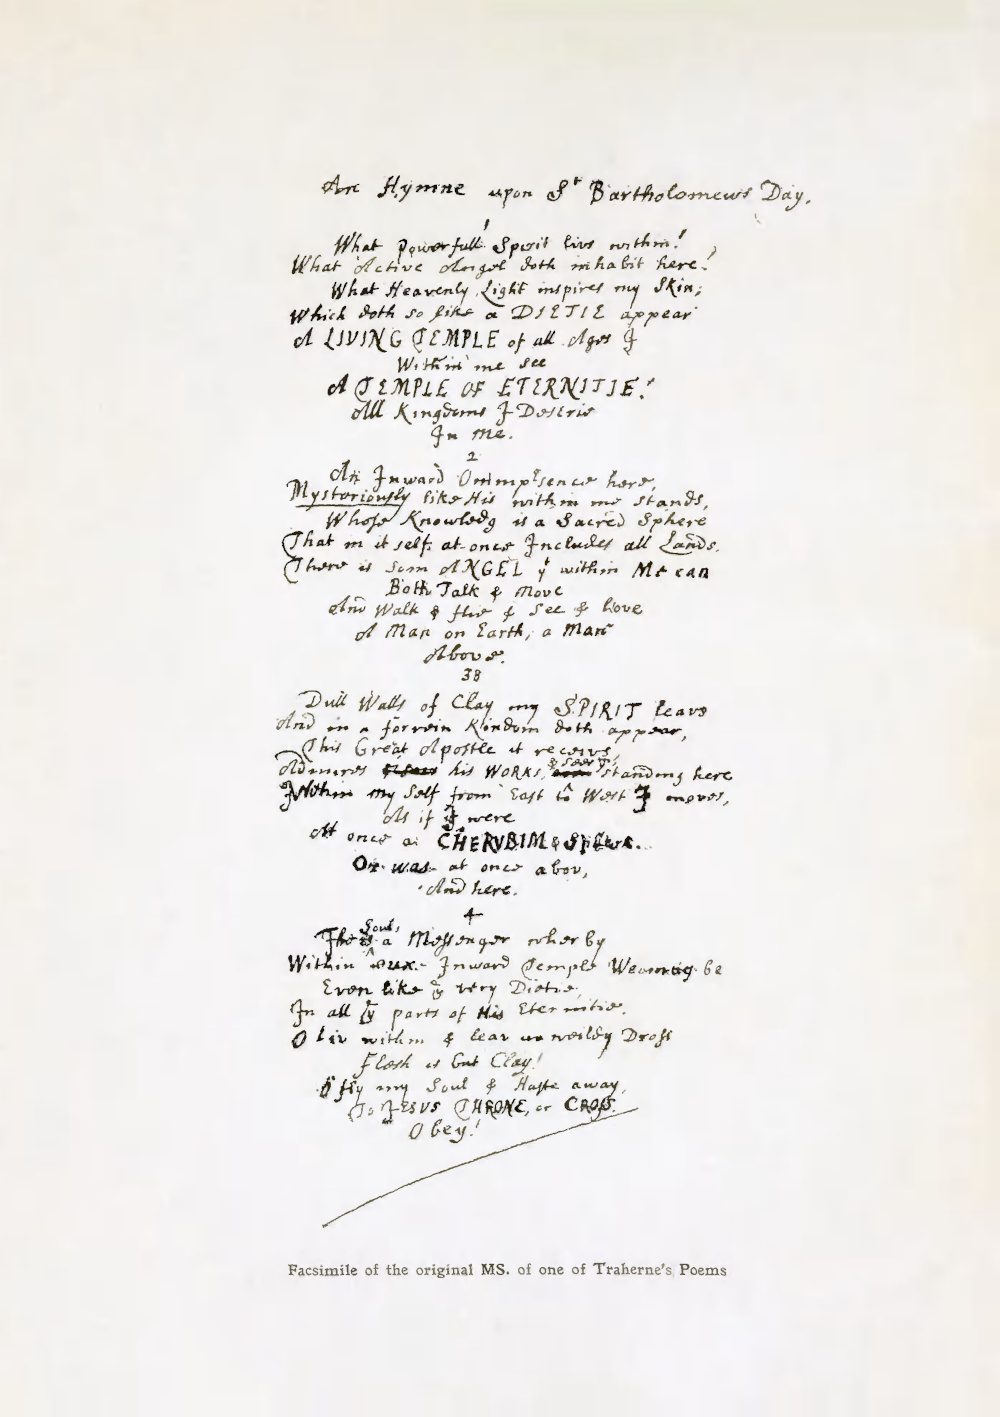 An Hymne upon St Bartholomews Day.
What powerfull Spirit livs within!
What Active Angel doth inhabit here!
What Heavenly Light inspires my Skin;
Which doth so like a DIETIE appear
A LIVING TEMPLE of all Ages I
Within me see
A TEMPLE OF ETERNITIE!
All Kingdoms I Descrie
In me.
2
An Inward Omnipresence here,
Mysteriously like His within me stands,
Whose Knowledg is a Sacred Sphere
That in it self at once Includes all Lands.
There is som ANGEL yt within Me can
Both Talk & move
And Walk & flie & see & love
A Man on Earth, a Man
Above.
3
Dull Walls of Clay my SPIRIT leavs
And in a forrein Kindom doth appear,
This Great Apostle it receivs,
Admires his WORKS, & sees ym, standing here
Within my Self from East to West I moves,
As if I were
At once a CHERUBIM & Sphere.
Or was at once abov,
And here.
4
The Soul's a Messenger wherby
Within our Inward Temple We may be
Even like ye very Dietie
In all ye parts of His Eternitie.
O liv within & leav unweildy Dross
Flesh is but Clay!
O fly my Soul & Haste away
To JESUS THRONE, or CROSS.
Obey!
Facsimile of the original MS. of one of Traherne's Poems